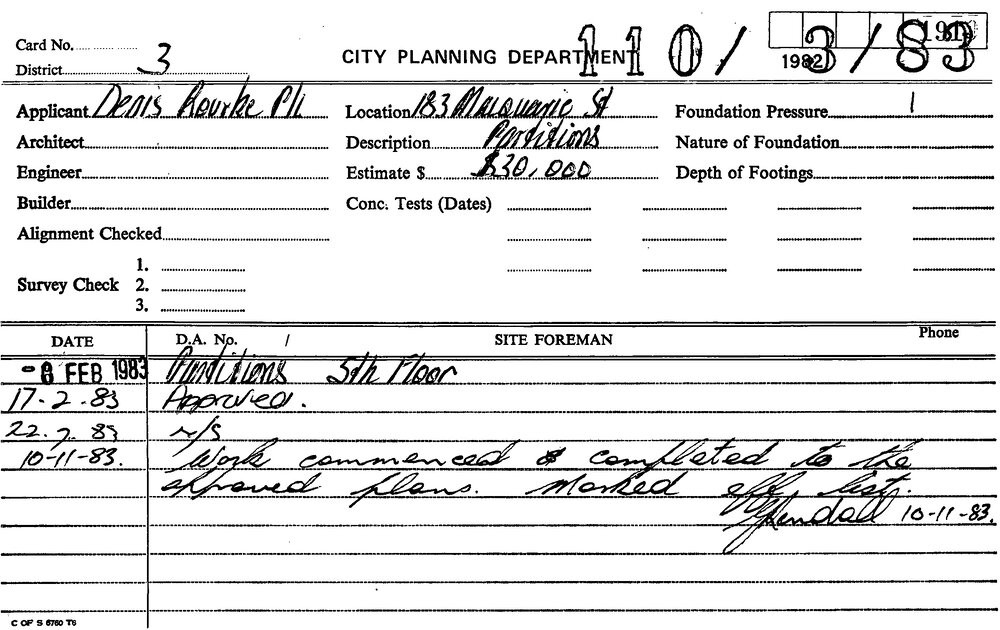 Card No.
District 3
CITY PLANNING DEPARTMENT
110/3/83
1982
Applicant Denis Rourke P/L
Location 183 Macquarie St
Foundation Pressure
Architect
Description Partitions
Nature of Foundation
Engineer
Estimate $ $30,000
Depth of Footings
Builder
Conc. Tests (Dates)
Alignment Checked
Survey Check
1.
2.
3.
DATE D.A. No. / SITE FOREMAN Phone
-8 FEB 1983 Partitions 5th Floor
17-2-83 Approved.
22.7.83 N/S
10-11-83. Work commenced & completed to the
approved plans. Marked off list.
10-11-83.
C OF S 6760 T6